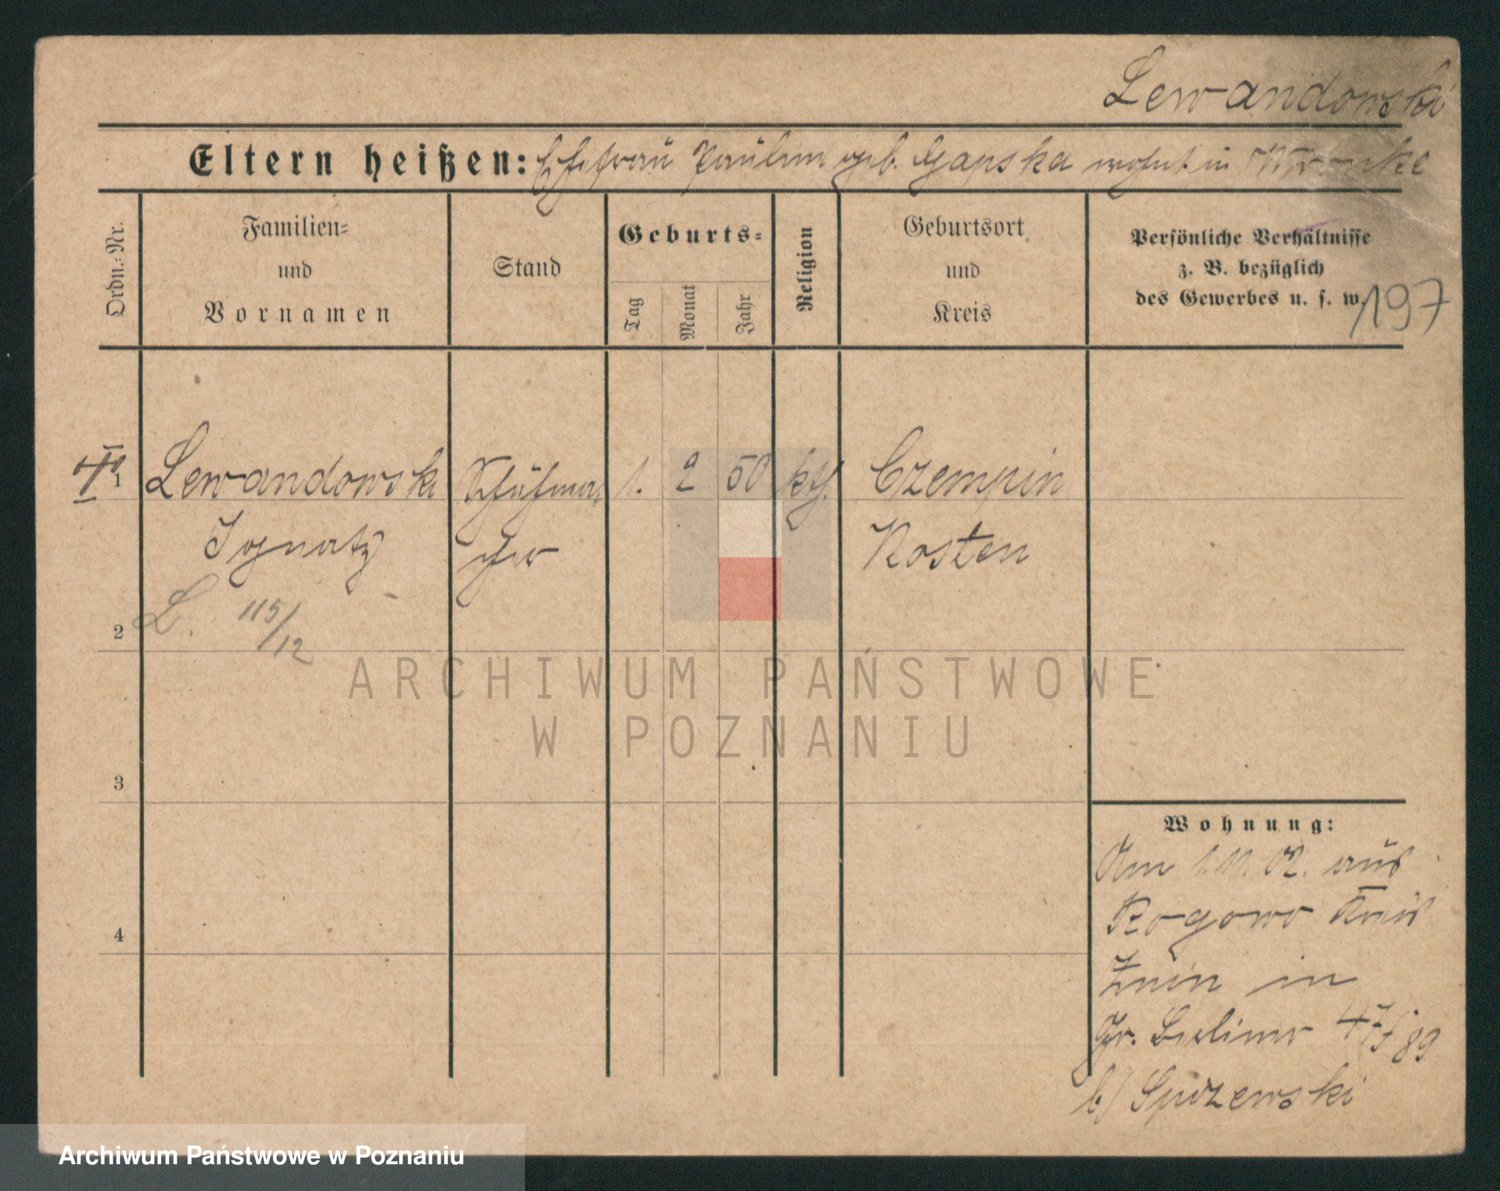 Lewandowski
Eltern heißen: Ehefrau Paulina geb. Gapska wohnt in Wronke
Ordn.-Nr.
Familien-
und
Vornamen
Stand
Geburts-
Tag
Monat
Jahr
Religion
Geburtsort
und
Kreis
Persönliche Verhältnisse
z. B. bezüglich
des Gewerbes u. s. w.
197
1 Lewandowski Schuhma- 1. 2 50 kth. Czempin
Ignatz cher Kosten
L. 115/12
2
3
4
Wohnung:
Am 1.11.02. aus
Rogowo Kreis
Znin in
Gr. Berliner 89
b/ Spizewski
ARCHIWUM PAŃSTWOWE
W POZNANIU
Archiwum Państwowe w Poznaniu